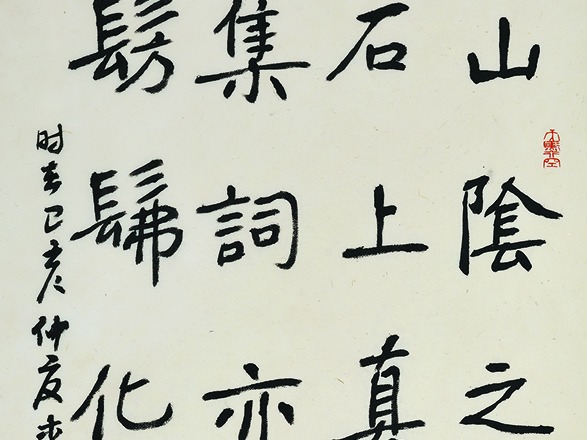 山陰之
石上真
集詞亦
髣髴化
时在己亥仲夏